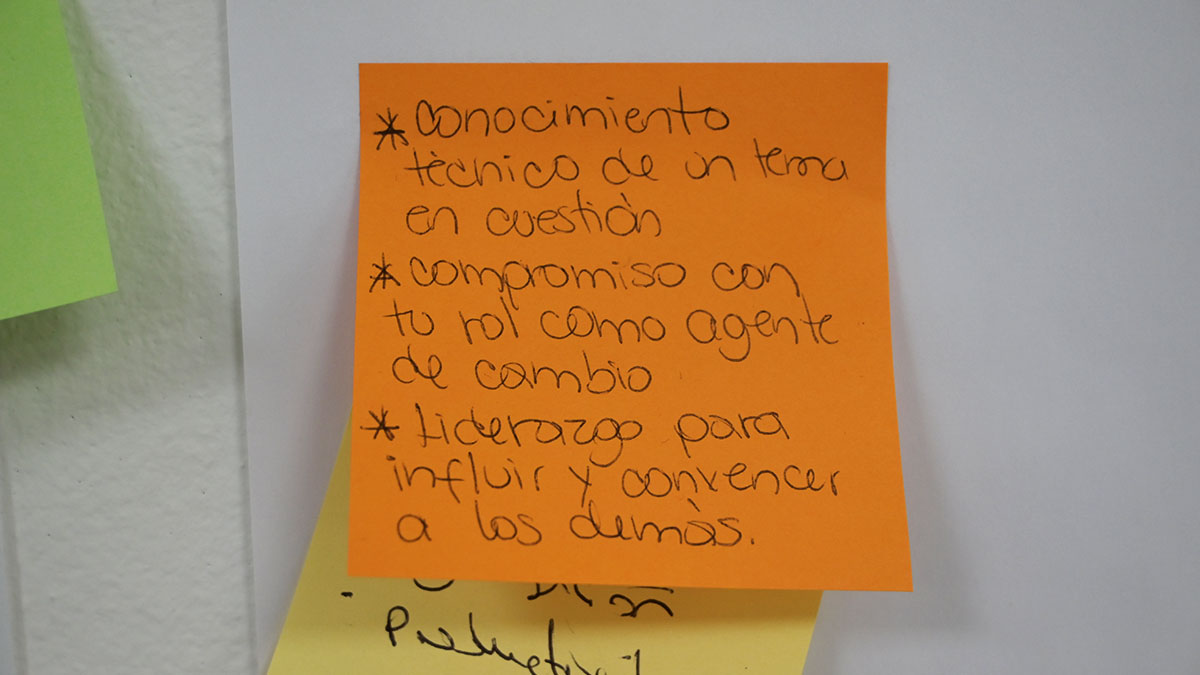 * conocimiento
técnico de un tema
en cuestión
* compromiso con
tu rol como agente
de cambio
* Liderazgo para
influir y convencer
a los demás.